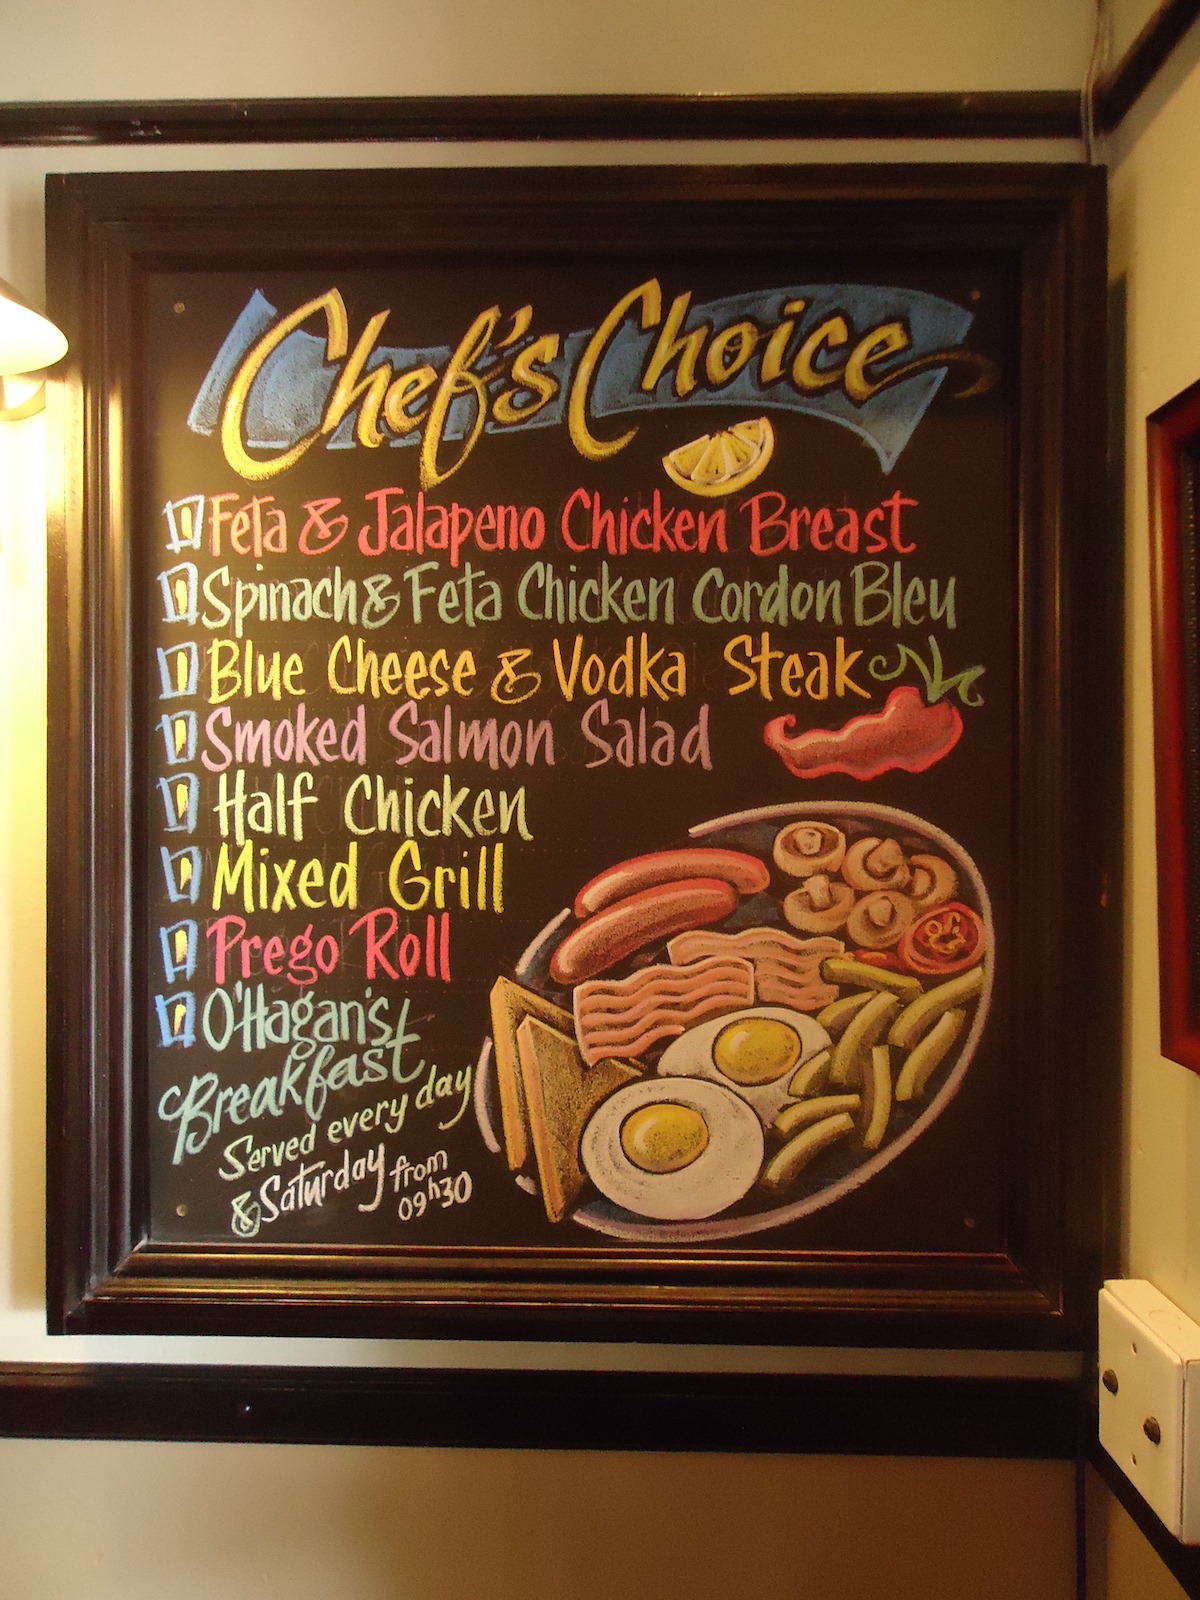 Chef's Choice
Feta & Jalapeno Chicken Breast
Spinach & Feta Chicken Cordon Bleu
Blue Cheese & Vodka Steak
Smoked Salmon Salad
Half Chicken
Mixed Grill
Prego Roll
O'Hagan's
Breakfast
Served every day
& Saturday from
09h30